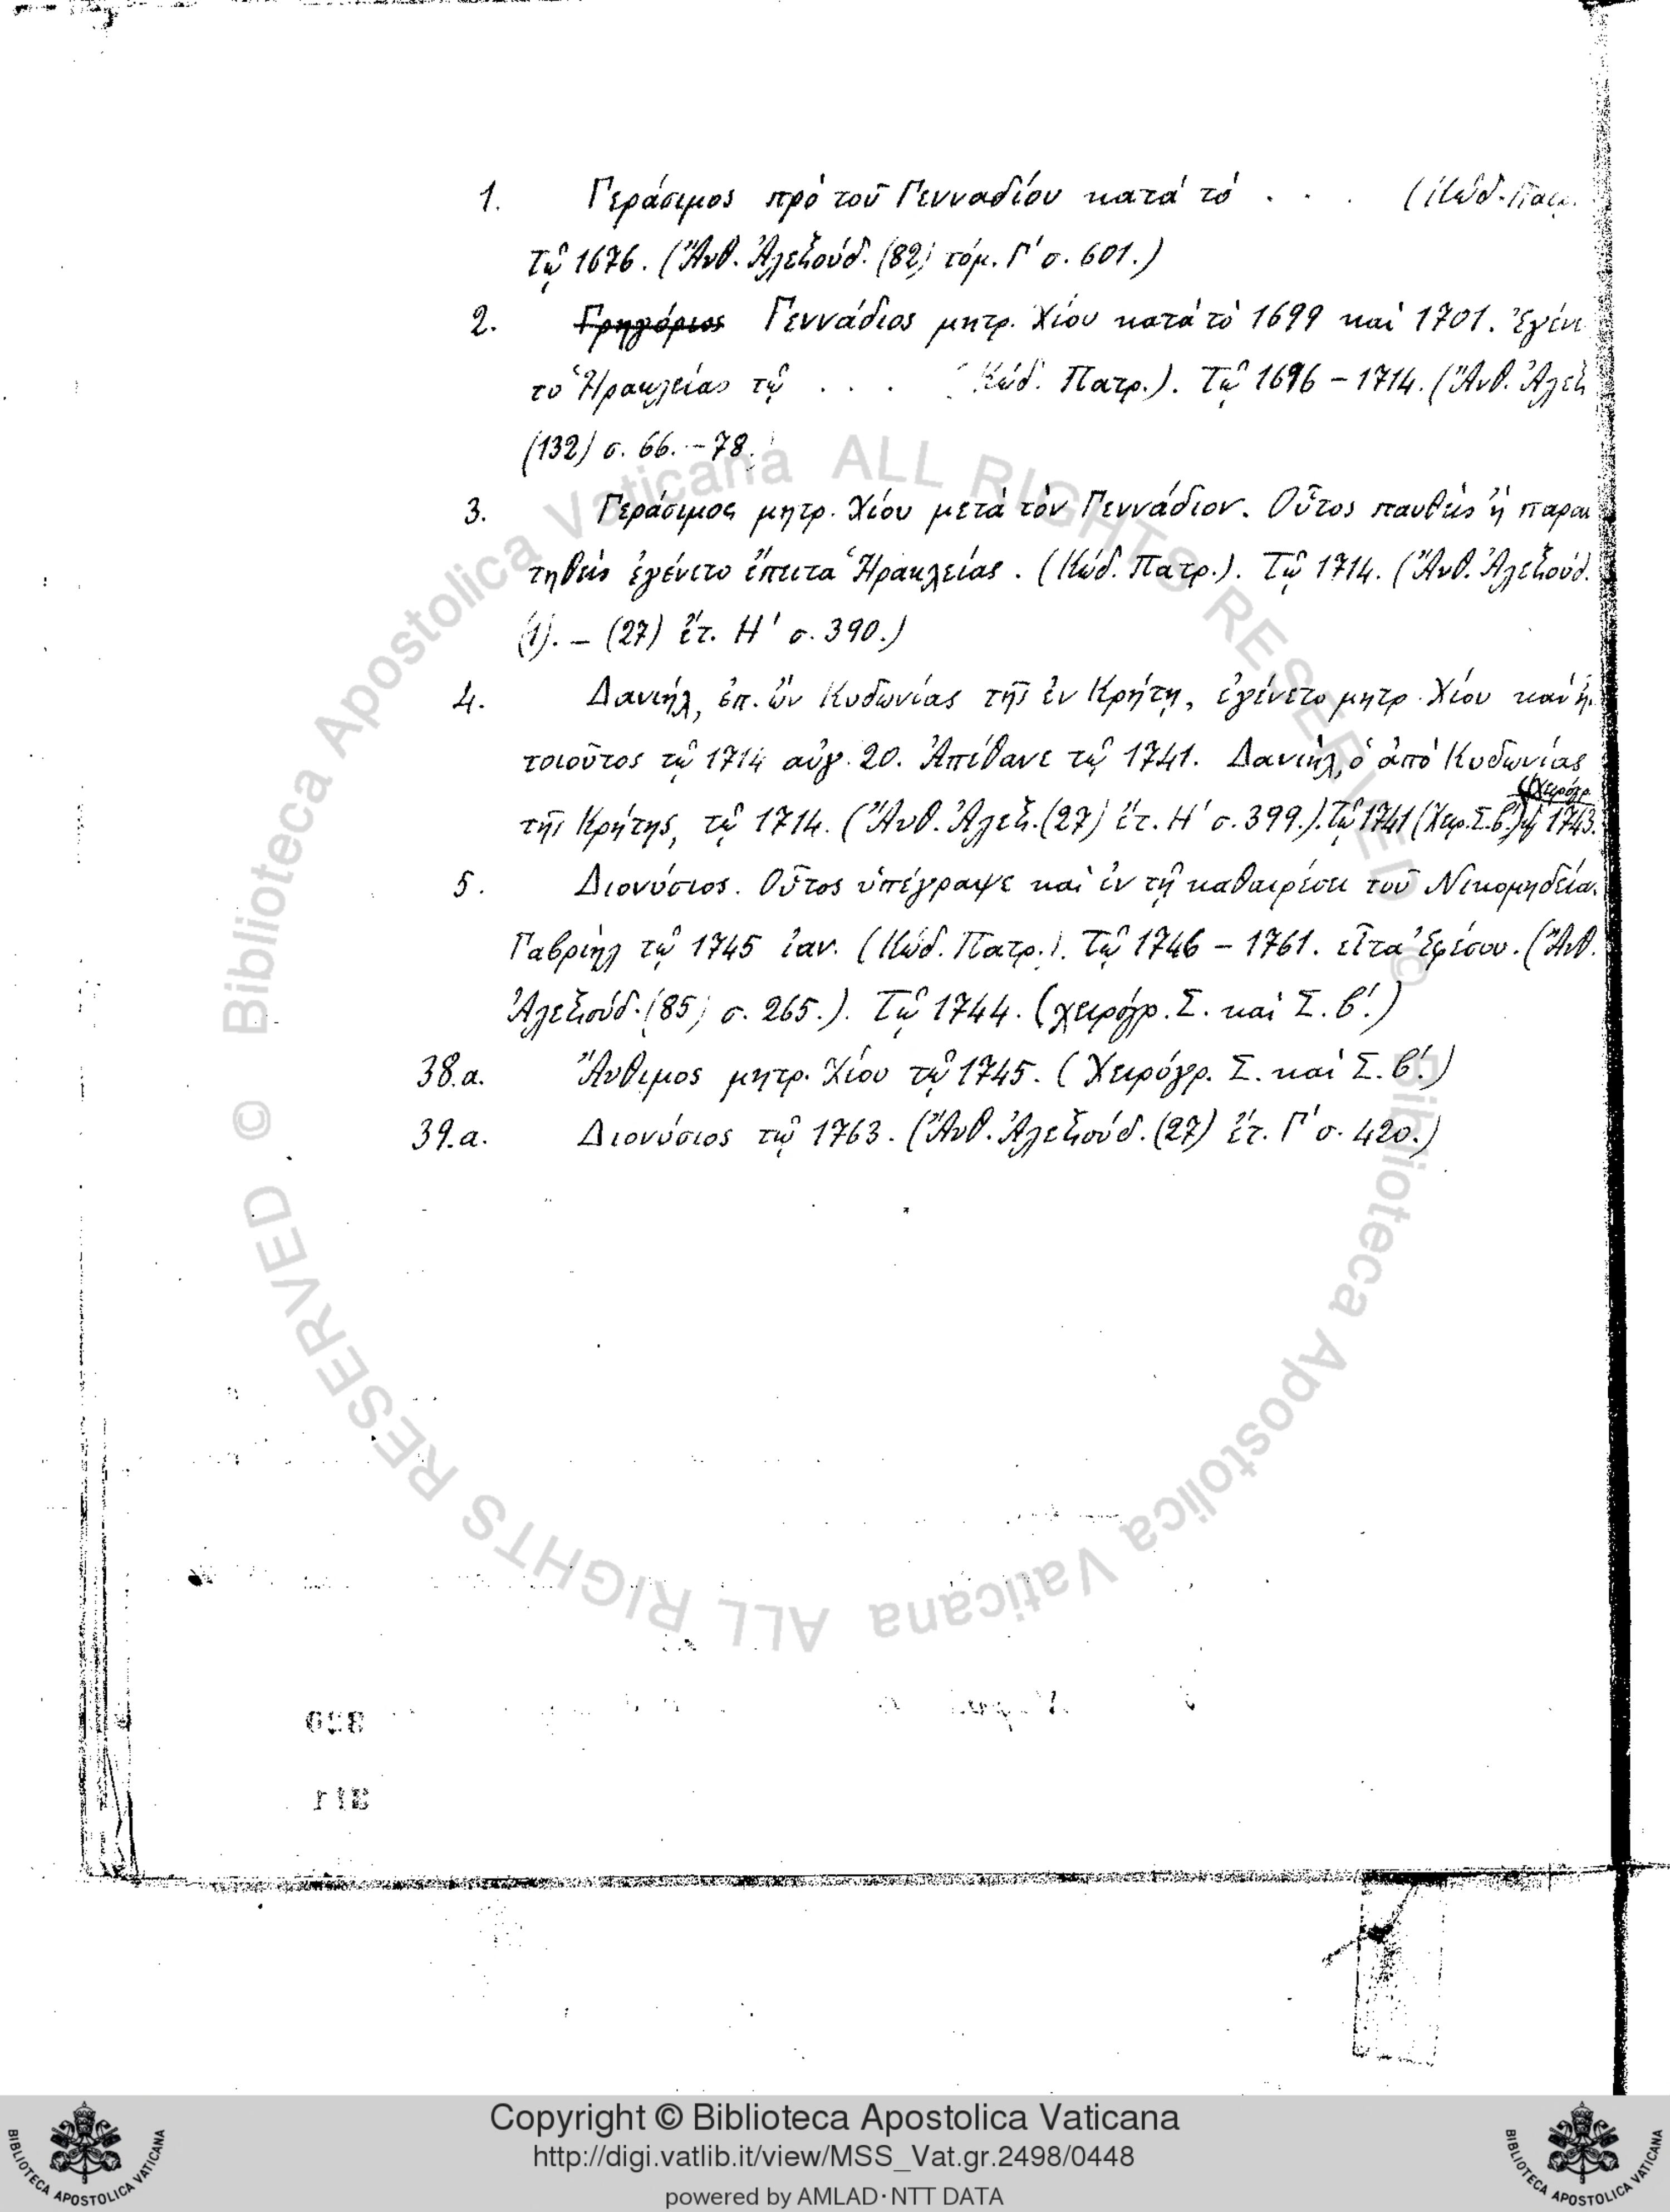 1. Γεράσιμος πρὸ τοῦ Γενναδίου κατὰ τὸ . . . (Κώδ. Πατρ.
Τῷ 1676. (Ἄνθ. Ἀλεξούδ. (82) τόμ. Γ' σ. 601.)
2. Γρηγόριος Γεννάδιος μητρ. Χίου κατὰ τὸ 1699 καὶ 1701. Ἐγένε
το Ἡρακλείας τῷ . . . (Κώδ. Πατρ.). Τῷ 1696 – 1714. (Ἄνθ. Ἀλεξ
(132) σ. 66. – 78.
3. Γεράσιμος μητρ. Χίου μετὰ τὸν Γεννάδιον. Οὗτος παυθεὶς ἢ παραι
τηθεὶς ἐγένετο ἔπειτα Ἡρακλείας. (Κώδ. Πατρ.). Τῷ 1714. (Ἄνθ. Ἀλεξούδ.
(1). – (27) ἔτ. Η' σ. 390.)
4. Δανιήλ, ἐπ. ὢν Κυδωνίας τῆς ἐν Κρήτῃ, ἐγένετο μητρ. Χίου καὶ ἦ
τοιοῦτος τῷ 1714 αὐγ. 20. Ἀπέθανε τῷ 1741. Δανιήλ, ὁ ἀπὸ Κυδωνίας
(Χειρόγρ.
τῆς Κρήτης, τῷ 1714. (Ἄνθ. Ἀλεξ. (27) ἔτ. Η' σ. 399.). Τῷ 1741 (Χειρ. Σ. β'.) ἢ 1743.
5. Διονύσιος. Οὗτος ὑπέγραψε καὶ ἐν τῇ καθαιρέσει τοῦ Νικομηδείας
Γαβριὴλ τῷ 1745 ἰαν. (Κώδ. Πατρ.). Τῷ 1746 – 1761. εἶτα Ἐφέσου. (Ἄνθ.
Ἀλεξούδ. (85) σ. 265.). Τῷ 1744. (χειρόγρ. Σ. καὶ Σ. β'.)
38.α. Ἄνθιμος μητρ. Χίου τῷ 1745. (Χειρόγρ. Σ. καὶ Σ. β'.)
39.α. Διονύσιος τῷ 1763. (Ἄνθ. Ἀλεξούδ. (27) ἔτ. Γ' σ. 420.)
© Biblioteca Apostolica Vaticana ALL RIGHTS RESERVED
© Biblioteca Apostolica Vaticana ALL RIGHTS RESERVED
Copyright © Biblioteca Apostolica Vaticana
http://digi.vatlib.it/view/MSS_Vat.gr.2498/0448
powered by AMLAD·NTT DATA
BIBLIOTECA APOSTOLICA VATICANA
BIBLIOTECA APOSTOLICA VATICANA